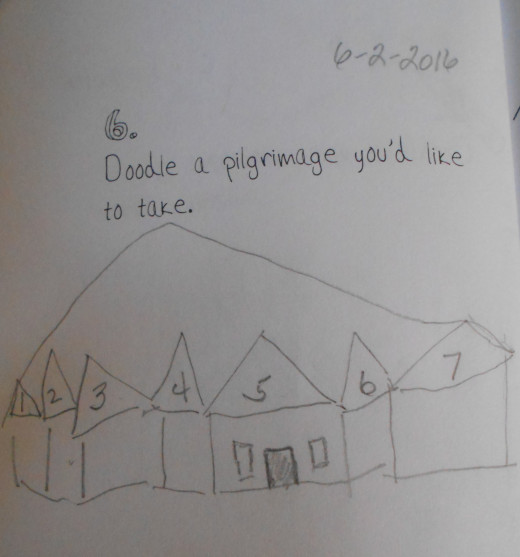 6-2-2016
6.
Doodle a pilgrimage you'd like
to take.
1 2 3 4 5 6 7